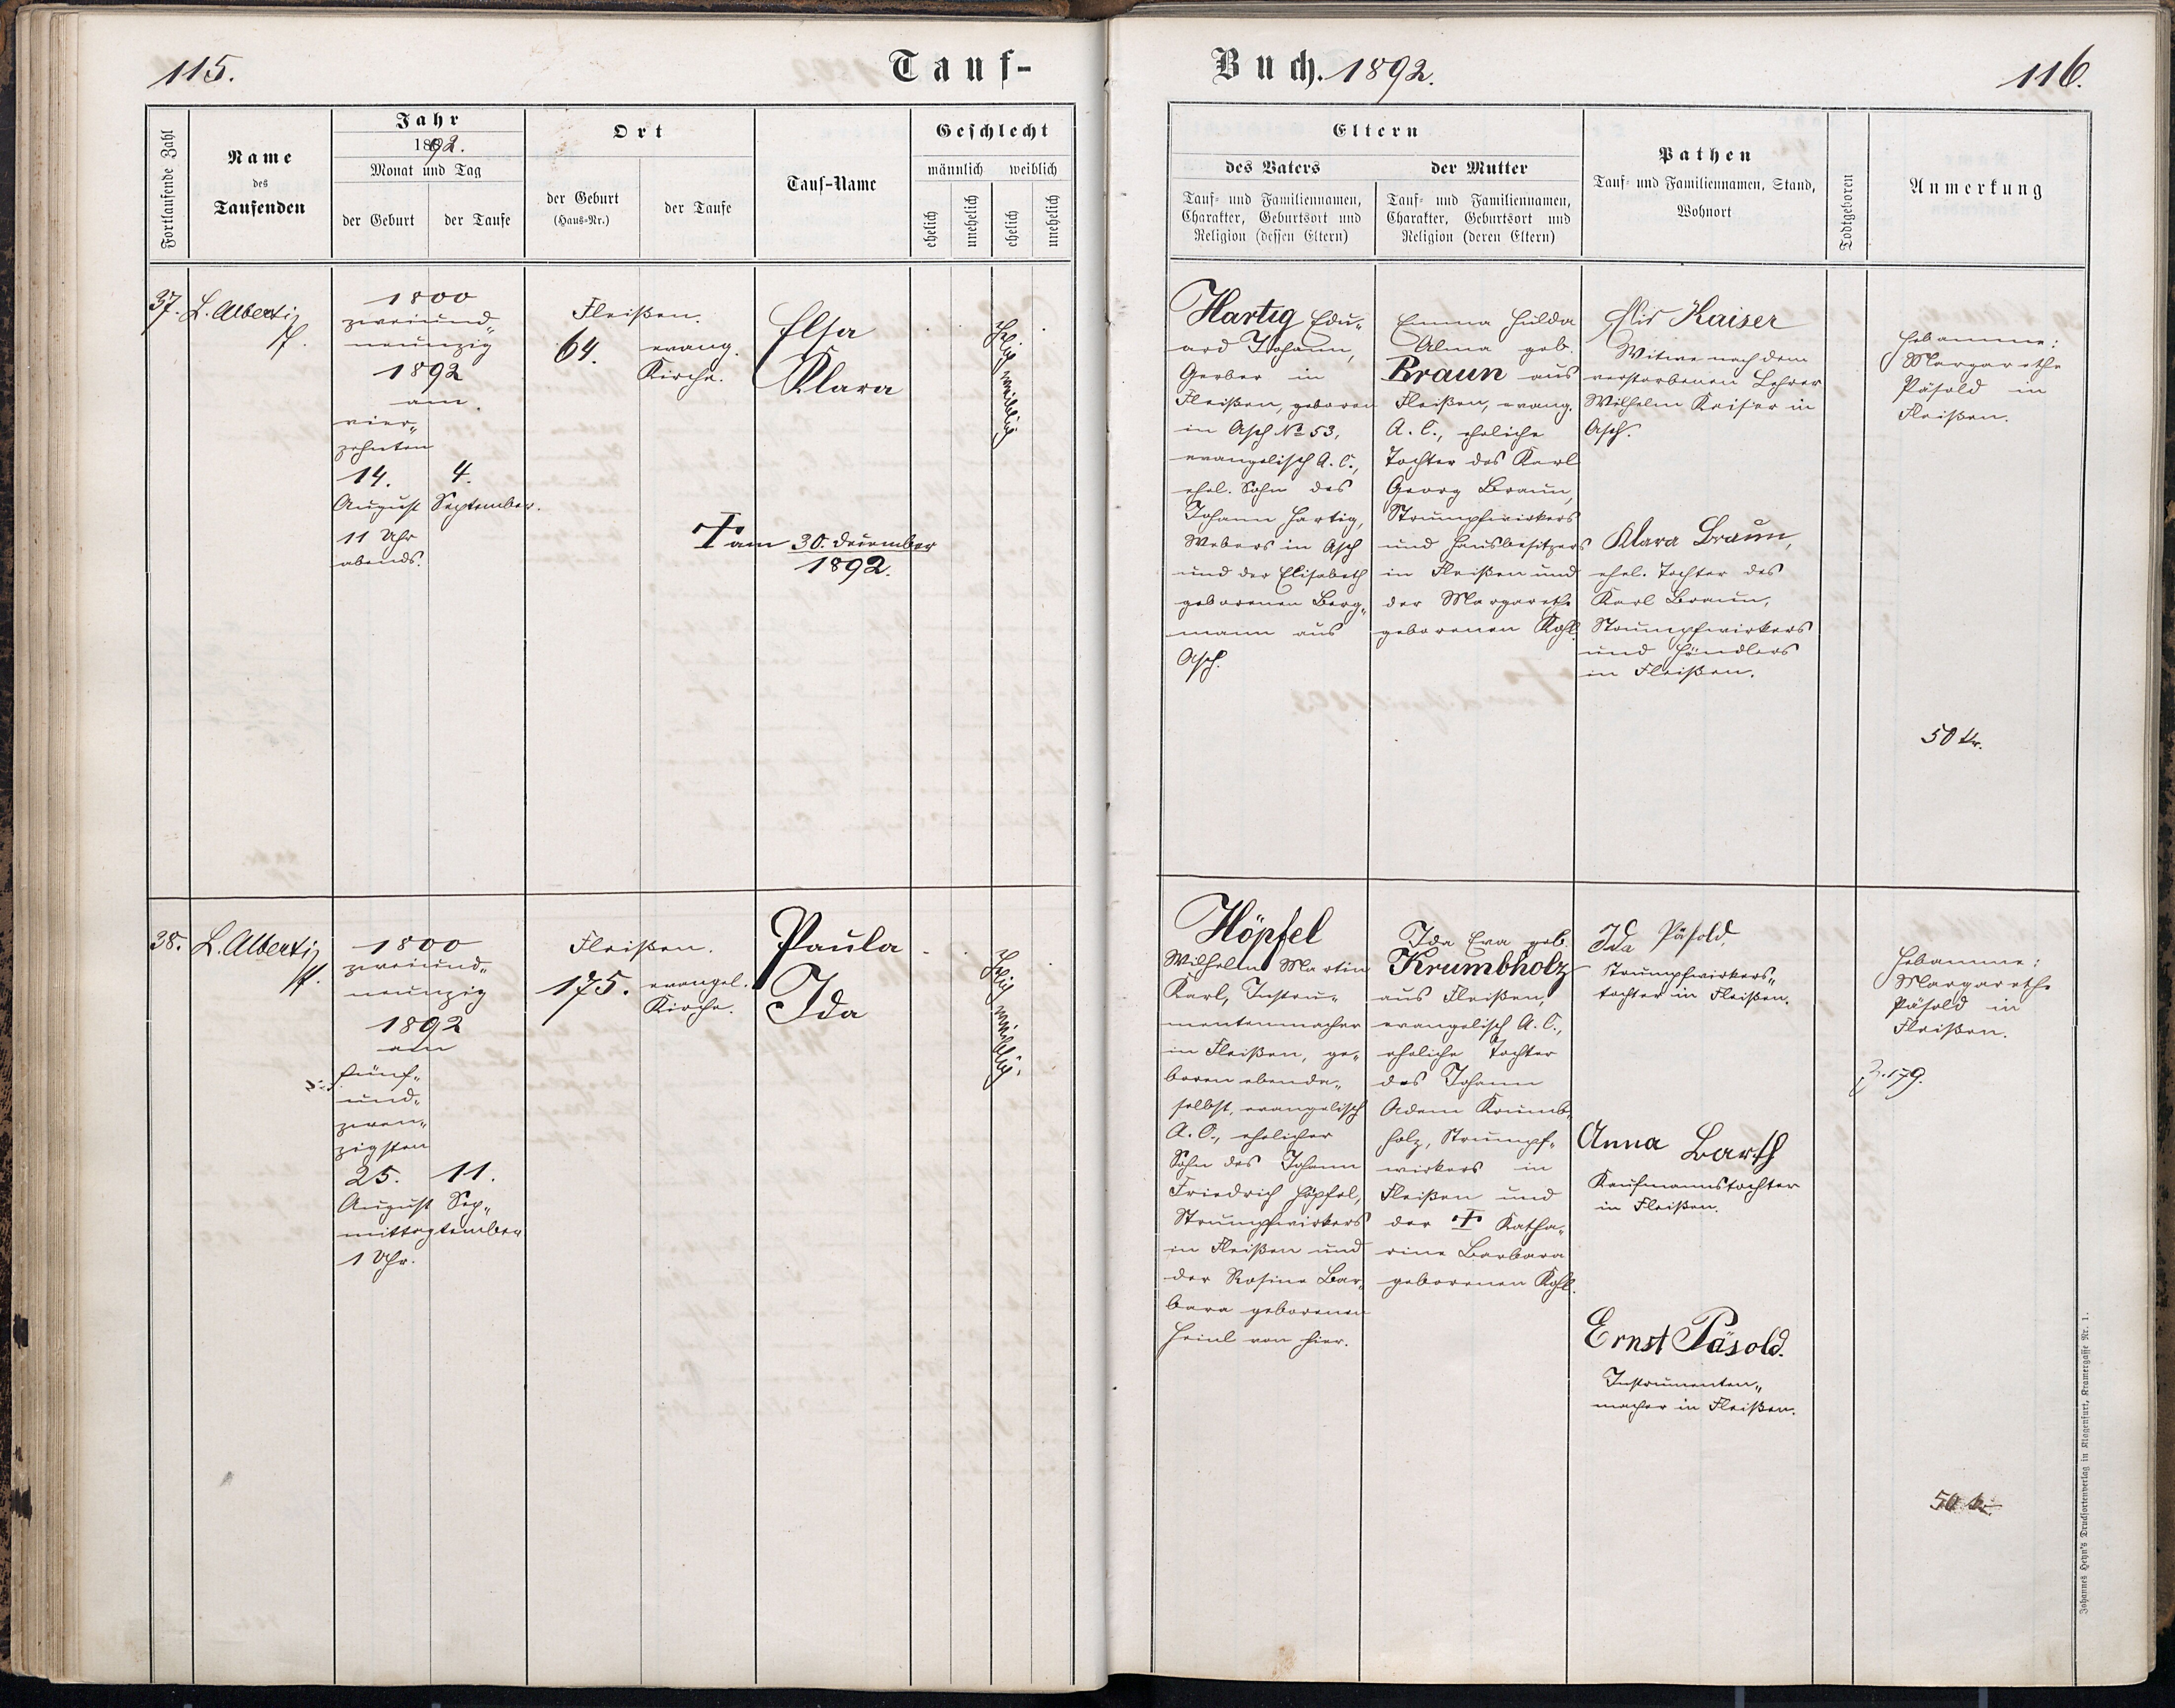 115.
Tauf-
Buch. 1892.
116.
Fortlaufende Zahl
Name
des
Taufenden
Jahr
1892.
Monat und Tag
der Geburt
der Taufe
Ort
der Geburt
(Haus-Nr.)
der Taufe
Tauf-Name
Geschlecht
männlich
weiblich
ehelich
unehelich
ehelich
unehelich
Eltern
des Vaters
Tauf- und Familiennamen,
Charakter, Geburtsort und
Religion (dessen Eltern)
der Mutter
Tauf- und Familiennamen,
Charakter, Geburtsort und
Religion (deren Eltern)
Pathen
Tauf- und Familiennamen, Stand,
Wohnort
Todtgeboren
Anmerkung
37.
L. Alberti
1800
zweiund„
neunzig
1892
am
vier„
zehnten
14.
August
11 Uhr
abends.
4.
September.
Fleißen.
64.
evang.
Kirche.
Elsa
Klara
† am 30. December
1892.
Hartig Edu„
ard Johann,
Gerber in
Fleißen, geboren
in Asch No 53,
evangelisch A. C.,
ehel. Sohn des
Johann Hartig,
Webers in Asch
und der Elisabeth
geborenen Berg„
mann aus
Asch.
Emma Hulda
Alma geb.
Braun aus
Fleißen, evang.
A. C., eheliche
Tochter des Karl
Georg Braun,
Strumpfwirkers
und Hausbesitzers
in Fleißen und
der Margarethe
geborenen Kohl.
Kaiser
Witwe nach dem
verstorbenen Lehrer
Wilhelm Kaiser in
Asch.
Klara Braun,
ehel. Tochter des
Karl Braun,
Strumpfwirkers
und Händlers
in Fleißen.
Hebamme:
Margarethe
Päsold in
Fleißen.
50 kr.
38.
L. Alberti
1800
zweiund„
neunzig
1892
am
fünf„
und„
zwan„
zigsten
25.
August
mittag
1 Uhr.
11.
Sep„
tember
Fleißen.
175.
evangel.
Kirche.
Paula
Ida
Höpfel
Wilhelm Martin
Karl, Instru„
mentenmacher
in Fleißen, ge„
boren ebenda„
selbst, evangelisch
A. C., ehelicher
Sohn des Johann
Friedrich Höpfel,
Strumpfwirkers
in Fleißen und
der Rosine Bar„
bara geborenen
Heinl von hier.
Ida Eva geb.
Krumbholz
aus Fleißen,
evangelisch A. C.,
eheliche Tochter
des Johann
Adam Krumb„
holz, Strumpf„
wirkers in
Fleißen und
der † Katha„
rine Barbara
geborenen Kohl.
Ida Päsold,
Strumpfwirkers„
tochter in Fleißen.
Anna Barth
Kaufmannstochter
in Fleißen.
Ernst Päsold.
Instrumenten„
macher in Fleißen.
Hebamme:
Margarethe
Päsold in
Fleißen.
Z. 179.
50 kr.
Johannes Heyn's Drucksortenverlag in Klagenfurt, Kramergasse Nr. 1.